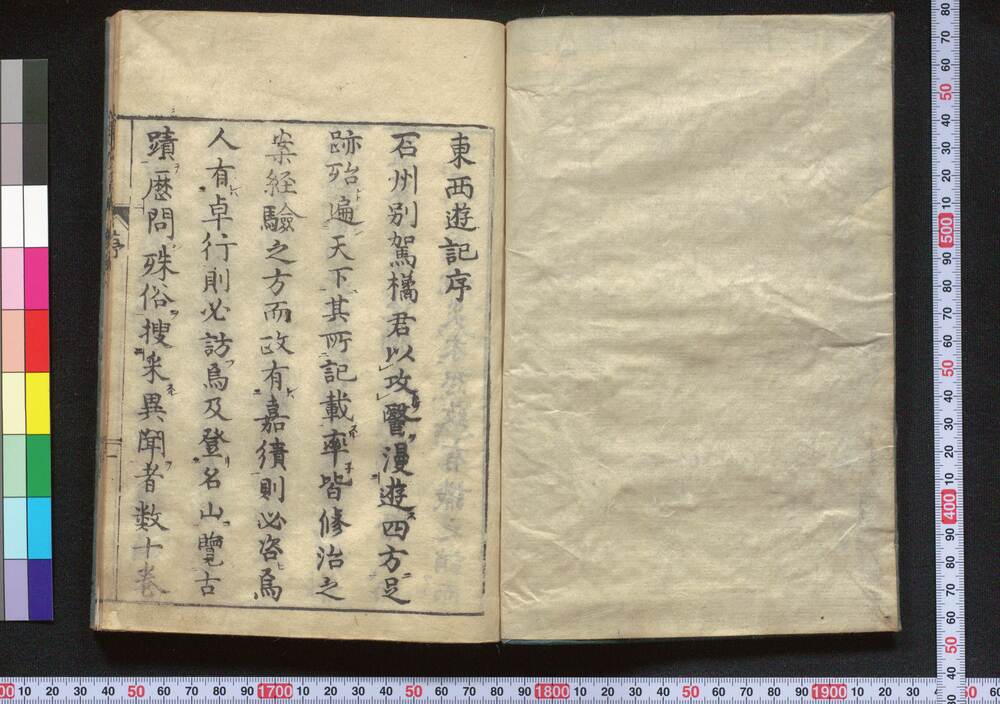 東西遊記序
石州別駕橘君以攻醫漫遊四方足
跡殆遍天下其所記載率皆修治之
案経驗之方而政有嘉績則必咨焉
人有卓行則必訪焉及登名山覽古
蹟歴問殊俗搜采異聞者数十巻
序